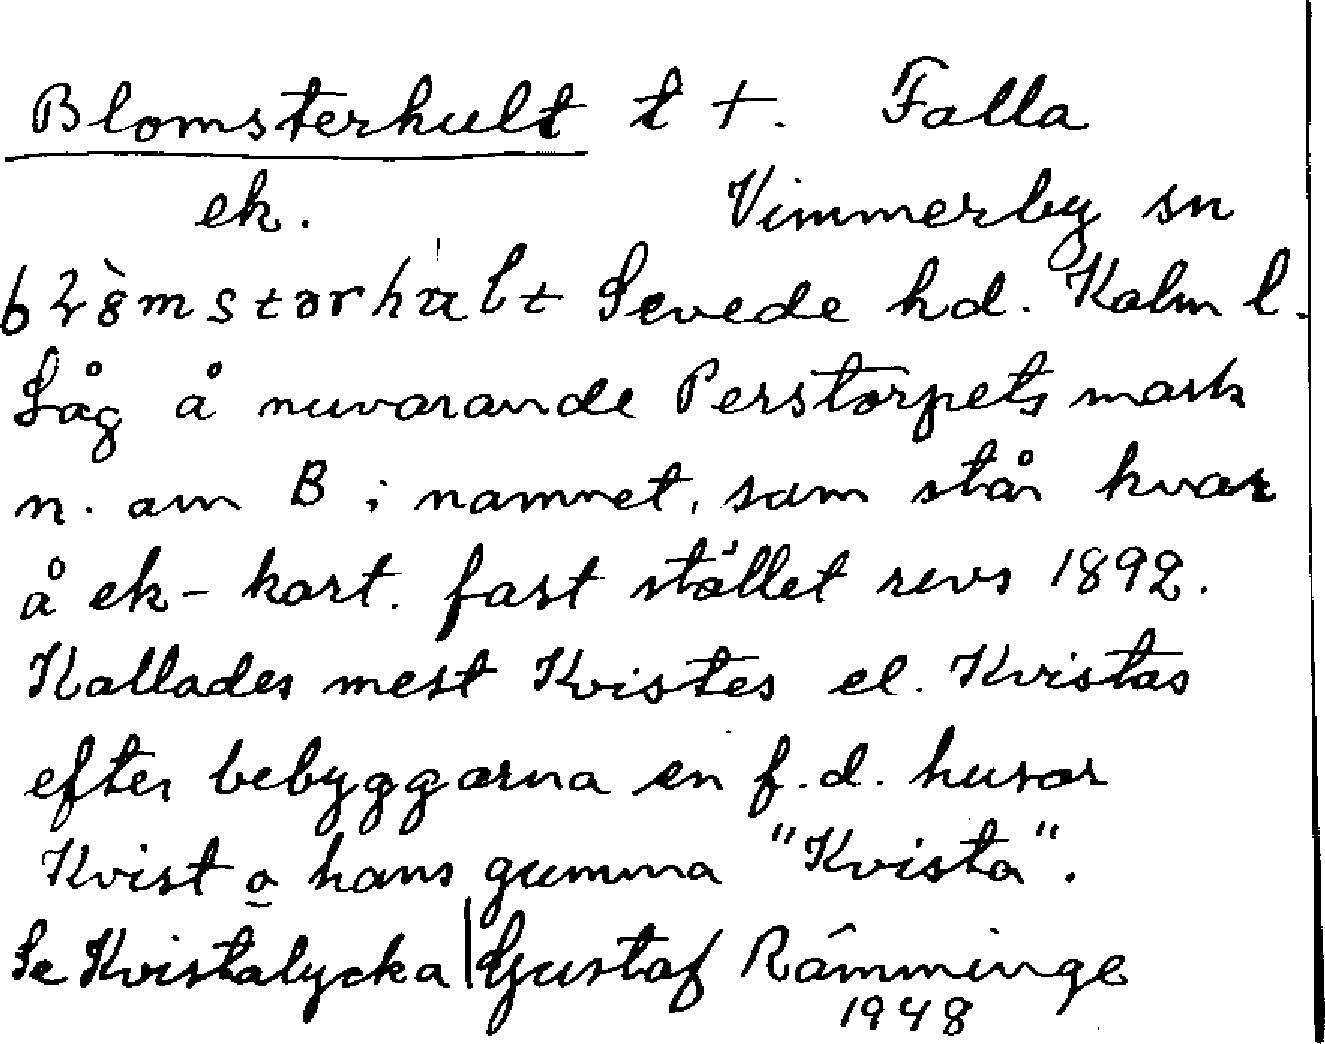 Blomsterhult t +. Falla
ek. Vimmerby sn
Sevede hd. Kalm l.
Låg å nuvarande Perstorpets mark
n. om B i namnet, som står kvar
å ek-kart. fast stället revs 1892.
Kallades mest Kvistes el. Kvistas
efter bebyggarna en f.d. husar
Kvist o hans gumma "Kvista".
Se Kvistalycka | Gustaf Rämminge
1948